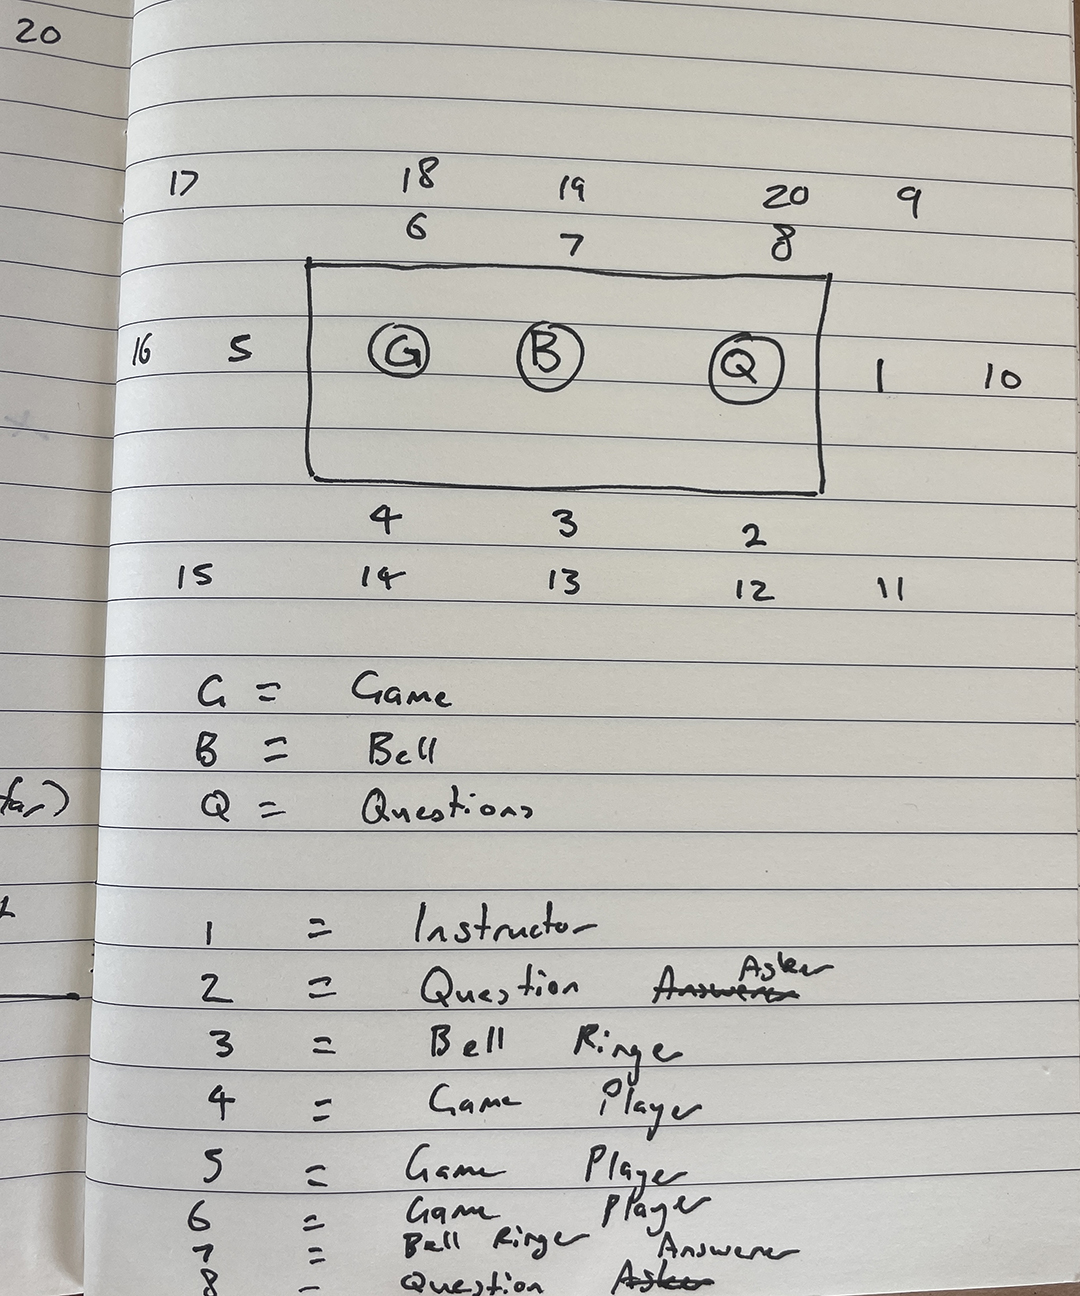 20
17 18 19 20 9
6 7 8
16 5 G B Q 1 10
4 3 2
15 14 13 12 11
G = Game
B = Bell
Q = Questions
1 = Instructor
Asker
2 = Question Answerer
3 = Bell Ringer
4 = Game Player
5 = Game Player
6 = Game Player
7 = Bell Ringer Answerer
8 = Question Asker